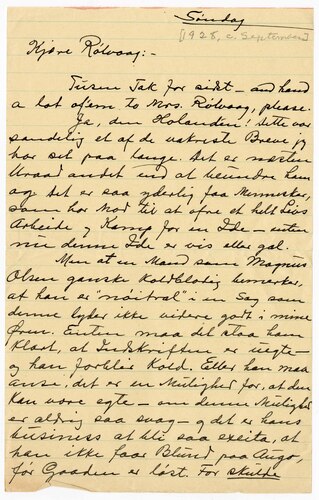 Søndag
[1928, c. September]
Kjære Rölvaag:-
Tusen Tak for sidst - and hand
a lot of em to Mrs. Rölvaag, please.
Ja, den Holanden! Dette var
sandelig et af de vakreste Breve jeg
har set paa lange. Det er næsten
Uraad andet end at beundre ham
og det er saa yderlig faa Mennesker,
som har Mod til at ofre et helt Livs
Arbeide og Kamp for en Ide - enten
nu denne Ide er vis eller gal.
Men at en Mand som Magnus
Olsen ganske koldblodig bemerker,
at han er "nöitral" i en Sag som
denne lyder ikke videre godt i mine
Øren. Enten maa det staa ham
klart, at Indskriften er uegte -
og han forblir kold. Eller han maa
anse, det er en Mulighed for, at den
kan være egte - om denne Mulighed
er aldrig saa svag - og det er hans
business at bli saa excita, at
han ikke faar Blund paa Auga,
før Gaaden er løst. For skulde